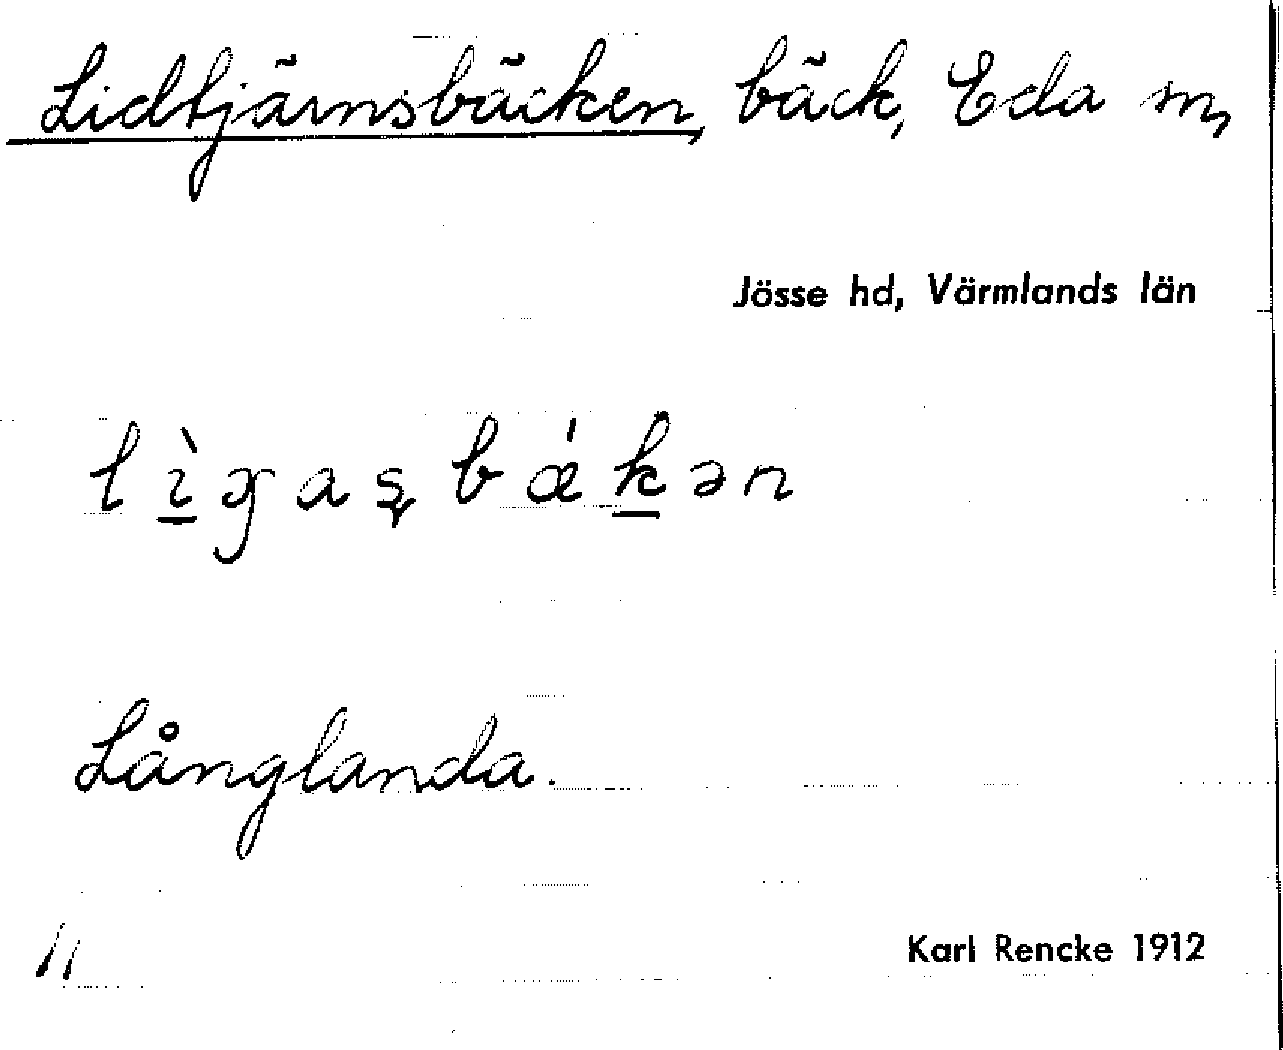 Lidtjärnsbäcken, bäck, Eda sn,
Jösse hd, Värmlands län
Långlanda.
Karl Rencke 1912